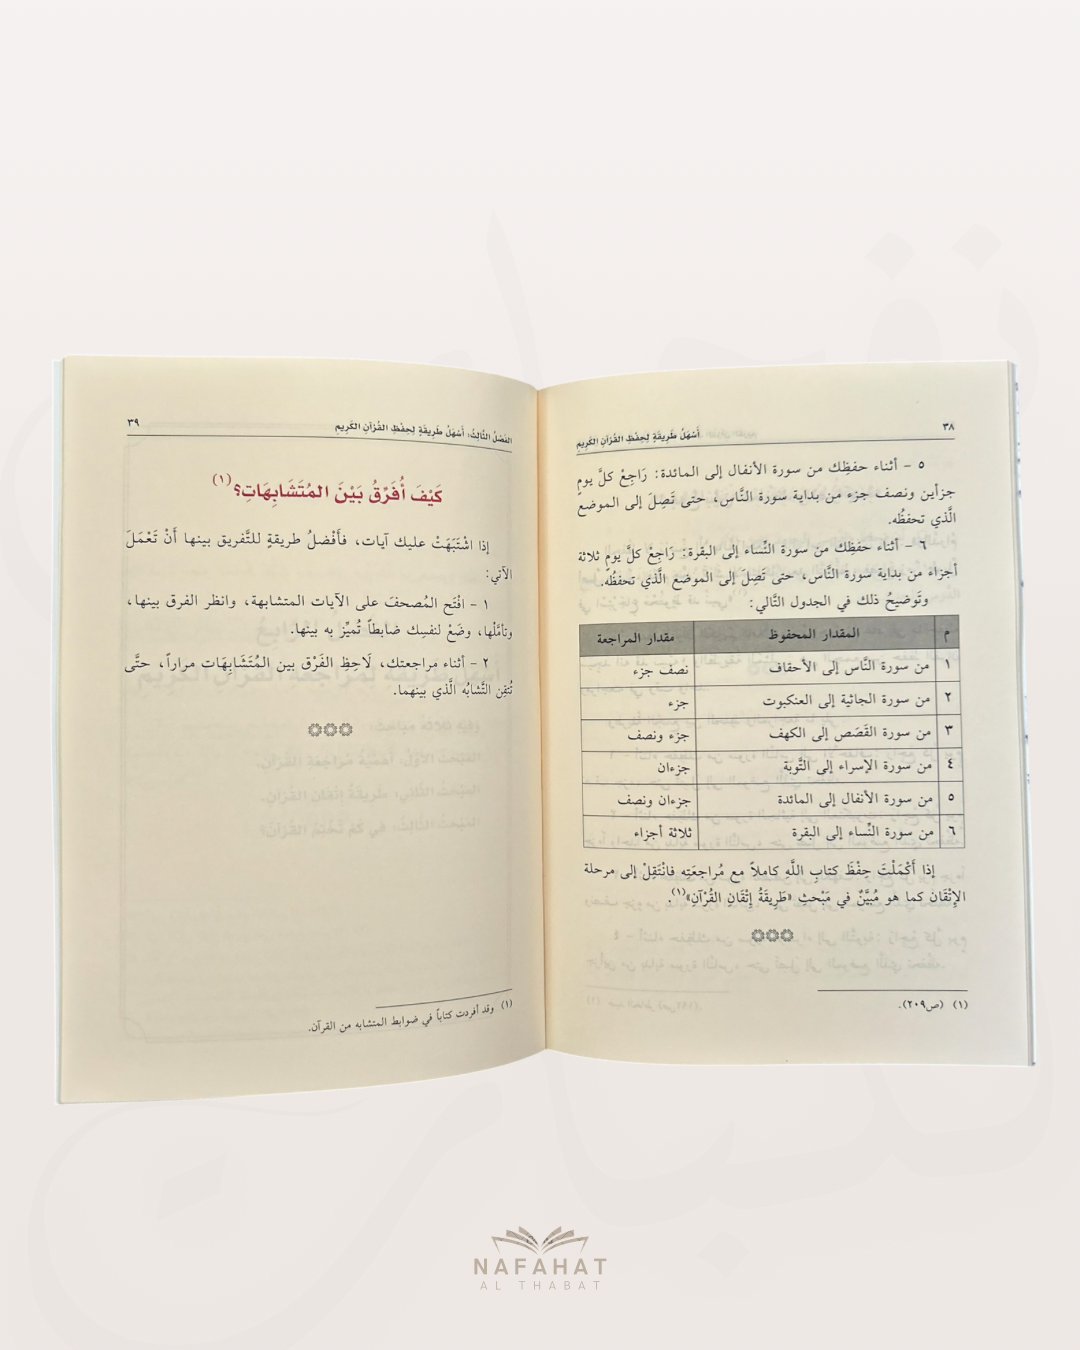 ٣٨
أَسْهَلُ طَرِيقَةٍ لِحِفْظِ القُرْآنِ الكَرِيمِ
٥ - أثناء حفظِك من سورة الأنفال إلى المائدة: رَاجِعْ كلَّ يومٍ
جزأين ونصف جزء من بداية سورة النَّاس، حتى تَصِلَ إلى الموضع
الَّذي تحفظُه.
٦ - أثناء حفظِك من سورة النِّساء إلى البقرة: رَاجِعْ كلَّ يومٍ ثلاثة
أجزاء من بداية سورة النَّاس، حتى تَصِلَ إلى الموضع الَّذي تحفظُه.
وتَوضيحُ ذلك في الجدول التَّالي:
م المقدار المحفوظ مقدار المراجعة
١ من سورة النَّاس إلى الأحقاف نصف جزء
٢ من سورة الجاثية إلى العنكبوت جزء
٣ من سورة القَصَص إلى الكهف جزء ونصف
٤ من سورة الإسراء إلى التَّوبة جزءان
٥ من سورة الأنفال إلى المائدة جزءان ونصف
٦ من سورة النِّساء إلى البقرة ثلاثة أجزاء
إذا أَكْمَلْتَ حِفْظَ كتابِ اللَّهِ كاملاً مع مُراجَعتِه فانْتَقِلْ إلى مرحلة
الإتْقَان كما هو مُبيَّنٌ في مَبْحثِ «طَرِيقَةُ إِتْقَانِ القُرْآنِ»(١).
(١) (ص٢٠٩).
الفَصْلُ الثَّالِثُ: أَسْهَلُ طَرِيقَةٍ لِحِفْظِ القُرْآنِ الكَرِيمِ
٣٩
كَيْفَ أُفَرِّقُ بَيْنَ المُتَشَابِهَاتِ؟(١)
إذا اشْتَبَهَتْ عليك آيات، فأَفْضلُ طريقةٍ للتَّفريق بينها أَنْ تَعْمَلَ
الآتي:
١ - افْتَح المُصحفَ على الآيات المتشابهة، وانظر الفرق بينها،
وتأمَّلْها، وضَعْ لنفسِك ضابطاً تُميِّز به بينها.
٢ - أثناء مراجعتك، لَاحِظِ الفَرْق بين المُتَشَابِهَات مراراً، حتَّى
تُتقِن التَّشابُه الَّذي بينهما.
(١) وقد أفردت كتاباً في ضوابط المتشابه من القرآن.
NAFAHAT
AL THABAT